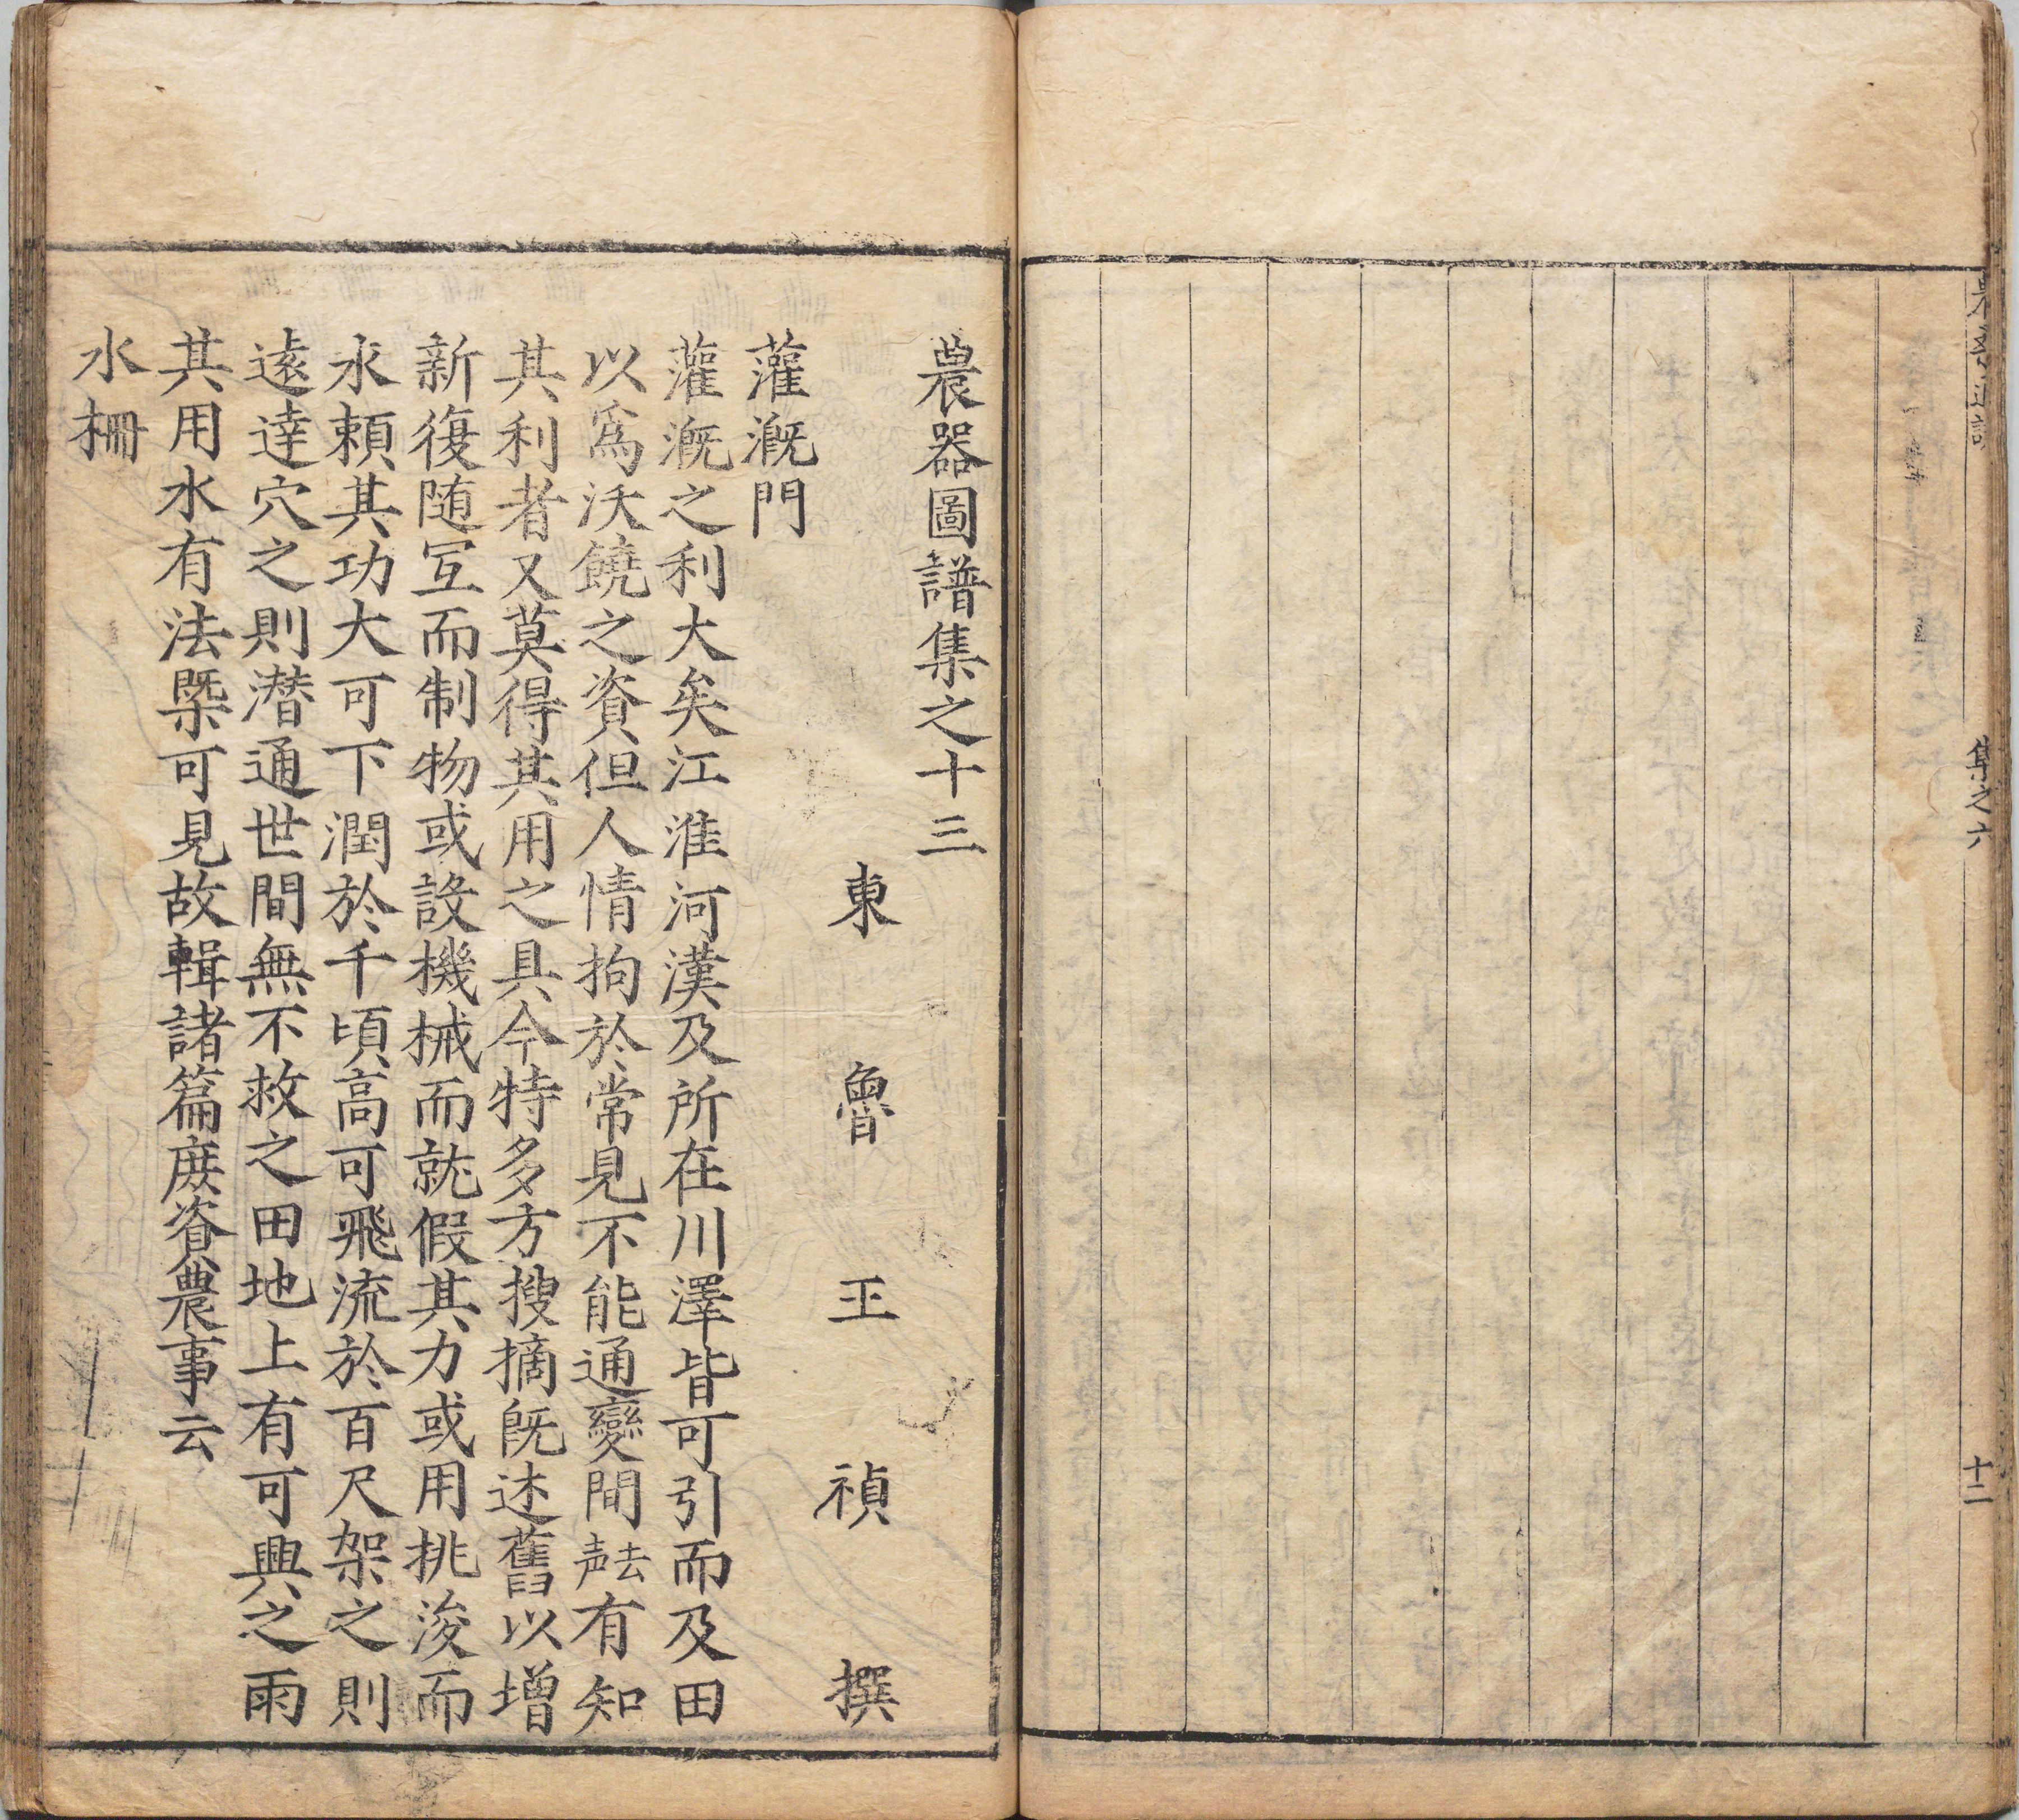 集之六
十二
農器圖譜集之十三
東魯王禎撰
灌漑門
灌漑之利大矣江淮河漢及所在川澤皆可引而及田
以爲沃饒之資但人情拘於常見不能通變間去声有知
其利者又莫得其用之具今特多方搜摘旣述舊以增
新復随宐而制物或設機械而就假其力或用挑浚而
永頼其功大可下潤於千頃高可飛流於百尺架之則
逺達穴之則潜通世間無不救之田地上有可興之雨
其用水有法槩可見故輯諸篇庻資農事云
水柵